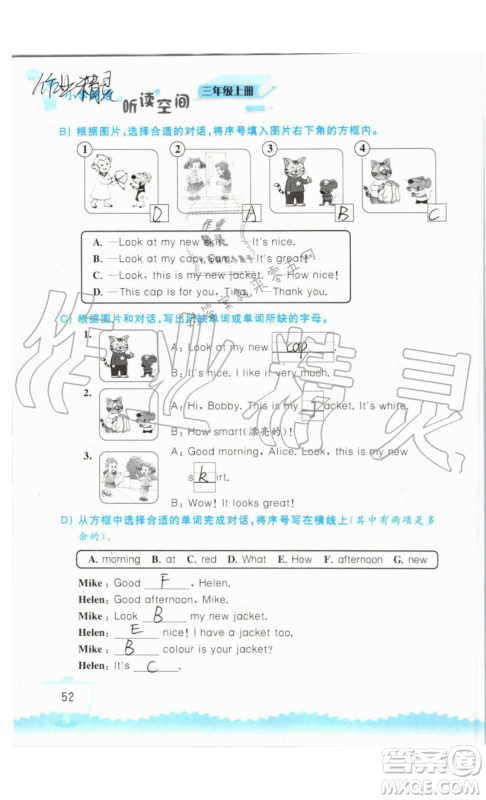 作业精灵
听读空间
三年级上册
B) 根据图片,选择合适的对话,将序号填入图片右下角的方框内。
1 2 3 4
D A B C
A. —Look at my new skirt. —It's nice.
B. —Look at my cap, Sam. —It's great!
C. —Look, this is my new jacket. — How nice!
D. —This cap is for you, Tina. — Thank you.
C) 根据图片和对话,写出所缺单词或单词所缺的字母。
1. A: Look at my new cap
B: It's nice. I like it very much.
2. A: Hi, Bobby. This is my new jacket. It's white.
B: How smart(漂亮的)!
3. A: Good morning, Alice. Look, this is my new
s k irt.
B: Wow! It looks great!
D) 从方框中选择合适的单词完成对话,将序号写在横线上(其中有两项是多
余的)。
A. morning B. at C. red D. What E. How F. afternoon G. new
Mike: Good F , Helen.
Helen: Good afternoon, Mike.
Mike: Look B my new jacket.
Helen: E nice! I have a jacket too.
Mike: B colour is your jacket?
Helen: It's C .
52
作业精灵
答案圈
MXQE.COM